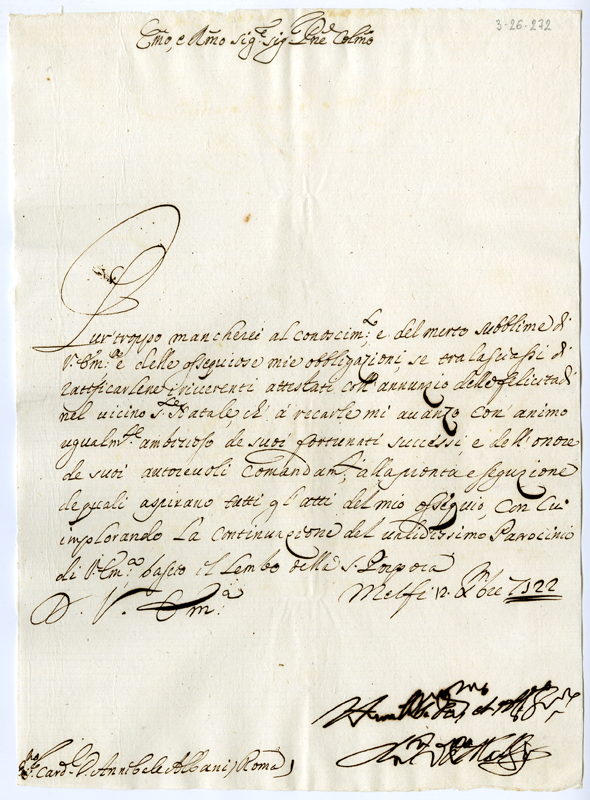 3-26-272
Emo, e Rmo Sig.r Sig.r Pne Colmo
Pur troppo mancherei al conoscim.to e del merto subblime di
V. Em.a e delle osseguiose mie obbligazioni, se tralasciassi di
rattificarlene i riverenti attestati coll'annunzio delle felicitadi
nel vicino S. Natale, ch' à recarle mi avanzo con animo
ugualm.te ambizioso de suoi fortunati successi, e dell'onore
de suoi autorevoli Comandam.ti, alla pronta esseguzione
de quali aspirano tutti gl'atti del mio osseguio, con cui
implorando La Continuazione del validissimo Patrocinio
di V. Em.a bascio il Lembo della S. Porpora
D. V. Em.a
Melfi 12. Xmbre 1722
Card. D. Annibale Albani, Roma